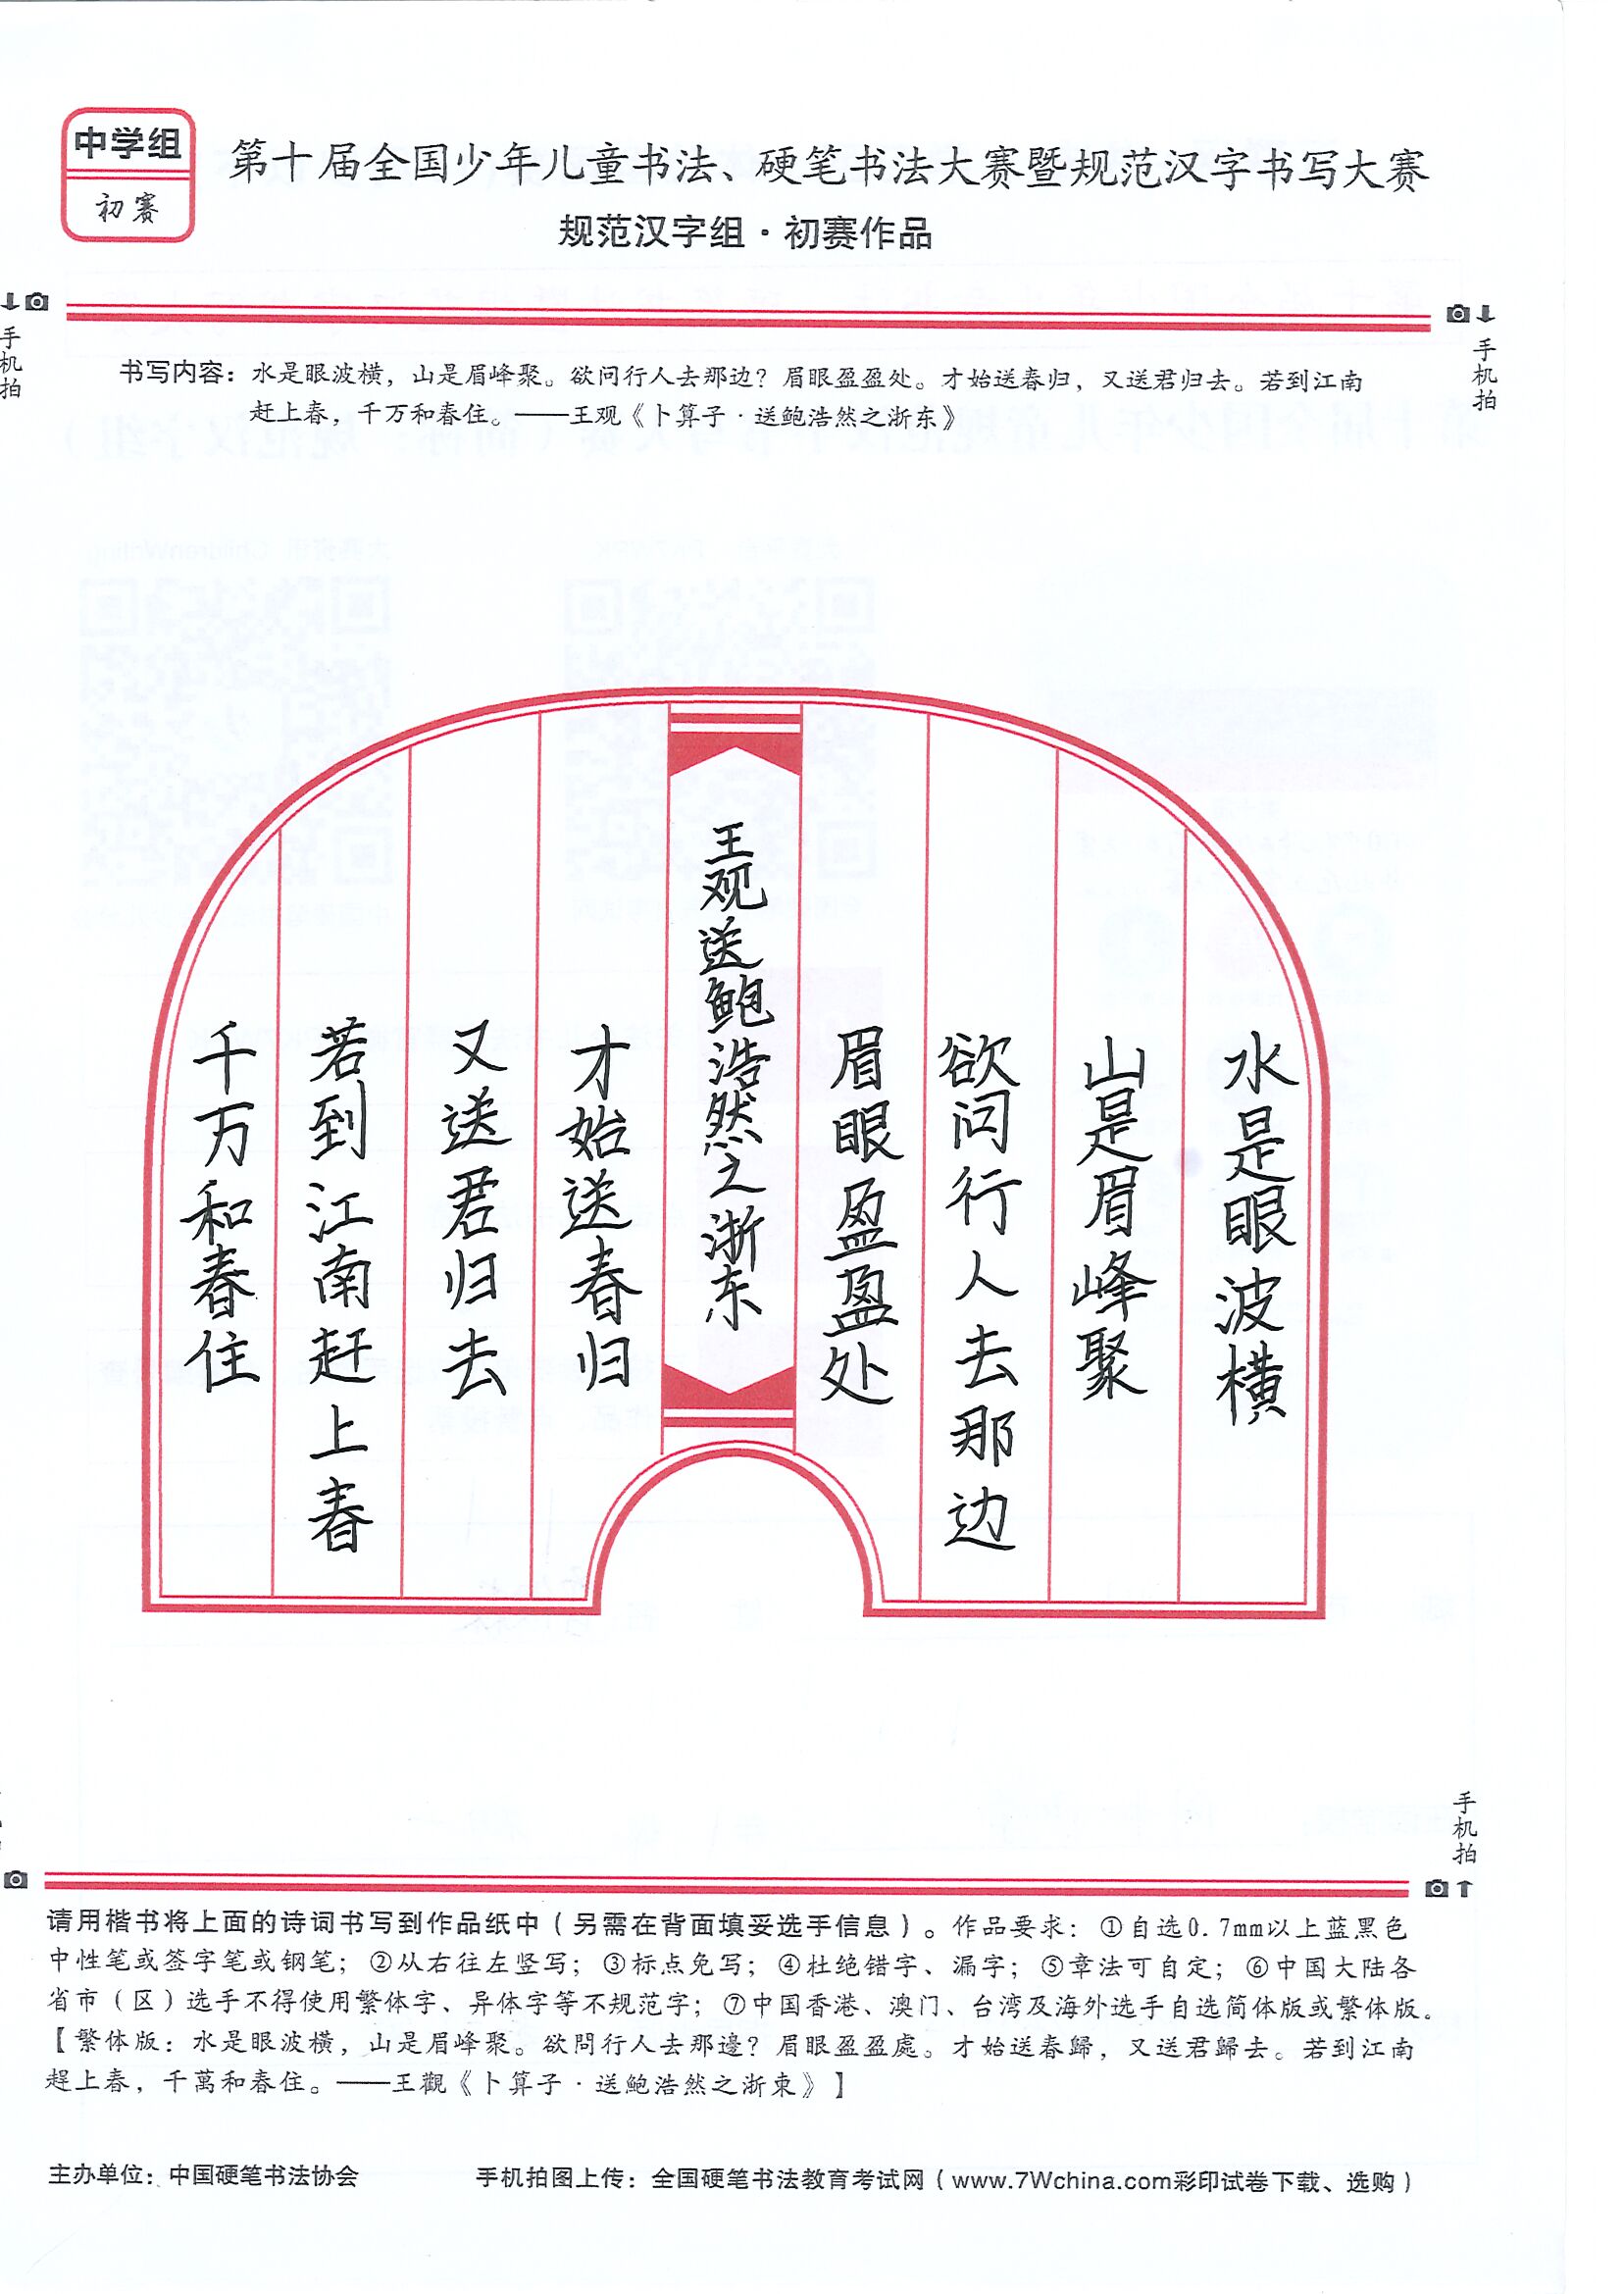 中学组
初赛
第十届全国少年儿童书法、硬笔书法大赛暨规范汉字书写大赛
规范汉字组·初赛作品
手机拍
手机拍
书写内容：水是眼波横，山是眉峰聚。欲问行人去那边？眉眼盈盈处。才始送春归，又送君归去。若到江南
赶上春，千万和春住。——王观《卜算子·送鲍浩然之浙东》
水是眼波横
山是眉峰聚
欲问行人去那边
眉眼盈盈处
王观送鲍浩然之浙东
才始送春归
又送君归去
若到江南赶上春
千万和春住
手机拍
请用楷书将上面的诗词书写到作品纸中（另需在背面填妥选手信息）。作品要求：①自选0.7mm以上蓝黑色
中性笔或签字笔或钢笔；②从右往左竖写；③标点免写；④杜绝错字、漏字；⑤章法可自定；⑥中国大陆各
省市（区）选手不得使用繁体字、异体字等不规范字；⑦中国香港、澳门、台湾及海外选手自选简体版或繁体版。
【繁体版：水是眼波橫，山是眉峰聚。欲問行人去那邊？眉眼盈盈處。才始送春歸，又送君歸去。若到江南
趕上春，千萬和春住。——王觀《卜算子·送鮑浩然之浙東》】
主办单位：中国硬笔书法协会
手机拍图上传：全国硬笔书法教育考试网（www.7Wchina.com彩印试卷下载、选购）